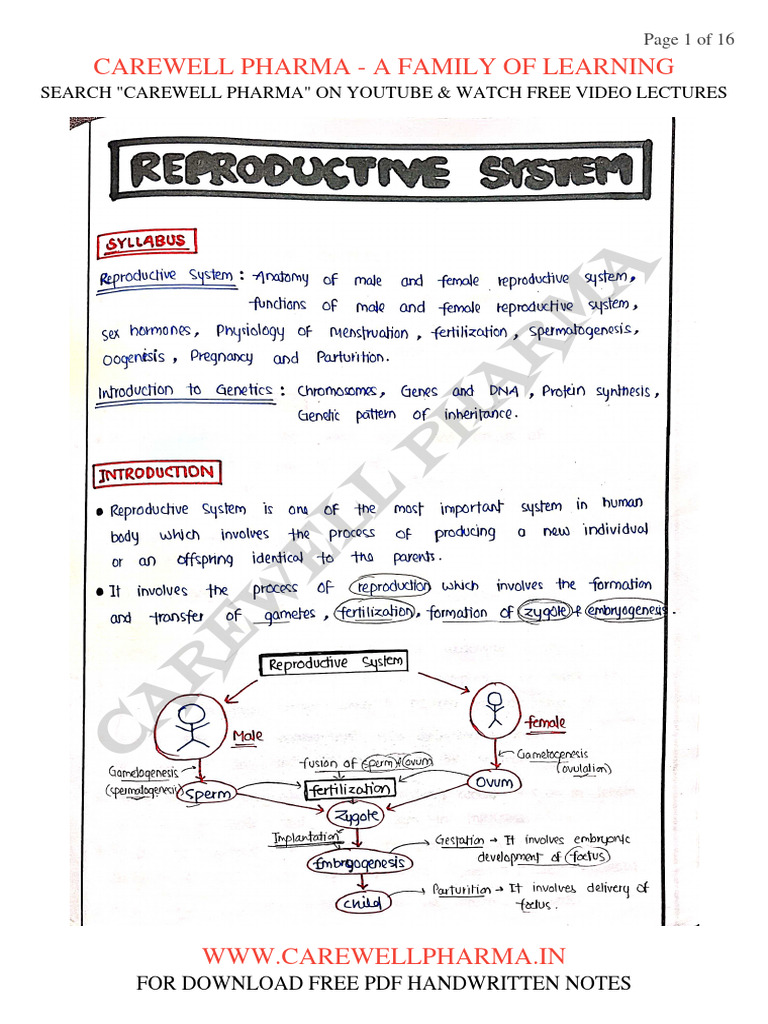 Page 1 of 16
CAREWELL PHARMA - A FAMILY OF LEARNING
SEARCH "CAREWELL PHARMA" ON YOUTUBE & WATCH FREE VIDEO LECTURES
REPRODUCTIVE SYSTEM
SYLLABUS
Reproductive System : Anatomy of male and female reproductive system,
functions of male and female reproductive system,
sex hormones, Physiology of Menstruation, fertilization, Spermatogenesis,
Oogenesis, Pregnancy and Parturition.
Introduction to Genetics : Chromosomes, Genes and DNA, Protein synthesis,
Genetic pattern of inheritance.
INTRODUCTION
• Reproductive System is one of the most important system in human
body which involves the process of producing a new individual
or an offspring identical to the parents.
• It involves the process of reproduction which involves the formation
and transfer of gametes, fertilization, formation of zygote & embryogenesis.
Reproductive System
Male
female
Gametogenesis
(spermatogenesis)
sperm
fusion of sperm & ovum
fertilization
Gametogenesis
(ovulation)
Ovum
Zygote
Implantation
Embryogenesis
Gestation → It involves embryonic
development of foetus
child
Parturition → It involves delivery of
foetus.
CAREWELL PHARMA
WWW.CAREWELLPHARMA.IN
FOR DOWNLOAD FREE PDF HANDWRITTEN NOTES